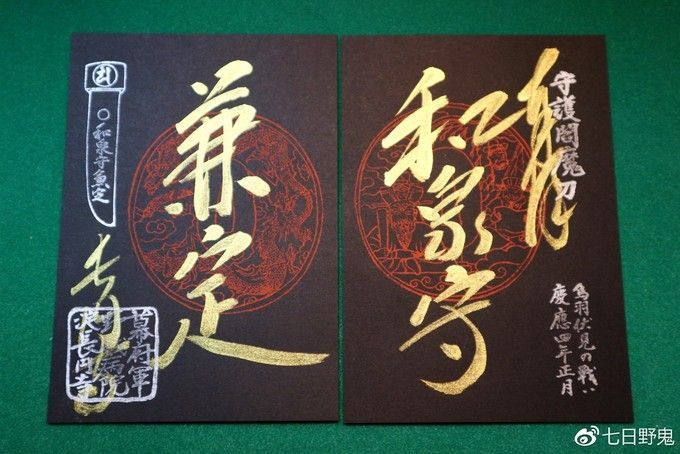 守護閻魔刀
和泉守
鳥羽伏見の戦い
慶應四年正月
兼定
和泉守兼定
幕府軍
病院
淀長円寺
七日野鬼